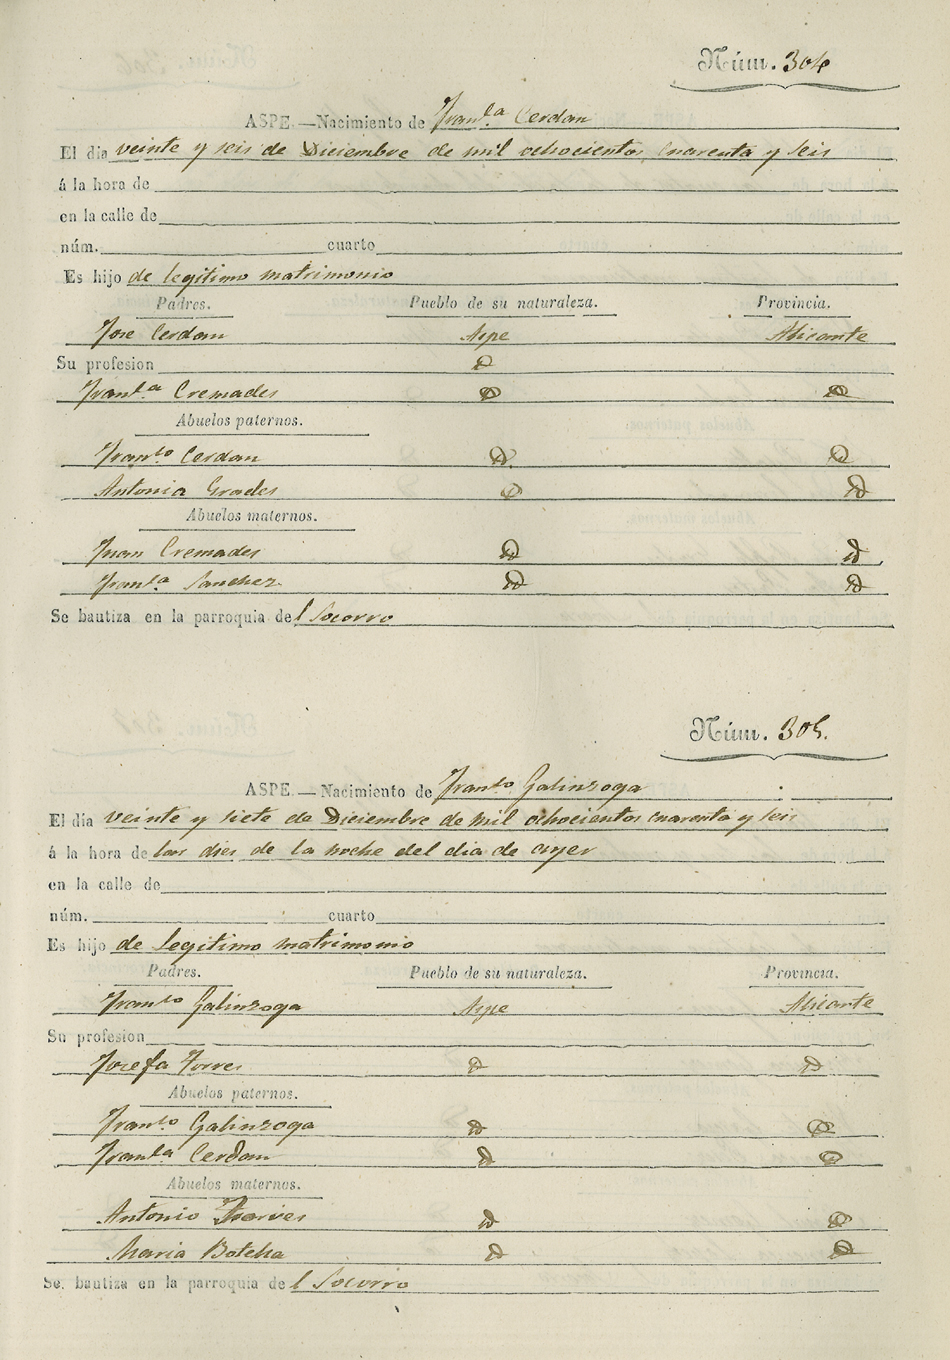 Núm. 304
ASPE.—Nacimiento de Fran.ca Cerdan
El dia veinte y seis de Diciembre de mil ochocientos cuarenta y seis
á la hora de
en la calle de
núm. cuarto
Es hijo de legitimo matrimonio
Padres. Pueblo de su naturaleza. Provincia.
Jose Cerdan Aspe Alicante
Su profesion
Fran.ca Cremades
Abuelos paternos.
Fran.co Cerdan
Antonia Grades
Abuelos maternos.
Juan Cremades
Fran.ca Sanchez
Se bautiza en la parroquia del Socorro
Núm. 305.
ASPE.—Nacimiento de Fran.co Galinzoga
El dia veinte y siete de Diciembre de mil ochocientos cuarenta y seis
á la hora de las dies de la noche del dia de ayer
en la calle de
núm. cuarto
Es hijo de legitimo matrimonio
Padres. Pueblo de su naturaleza. Provincia.
Fran.co Galinzoga Aspe Alicante
Su profesion
Josefa Torres
Abuelos paternos.
Fran.co Galinzoga
Fran.ca Cerdan
Abuelos maternos.
Antonio
Maria Botella
Se bautiza en la parroquia del Socorro